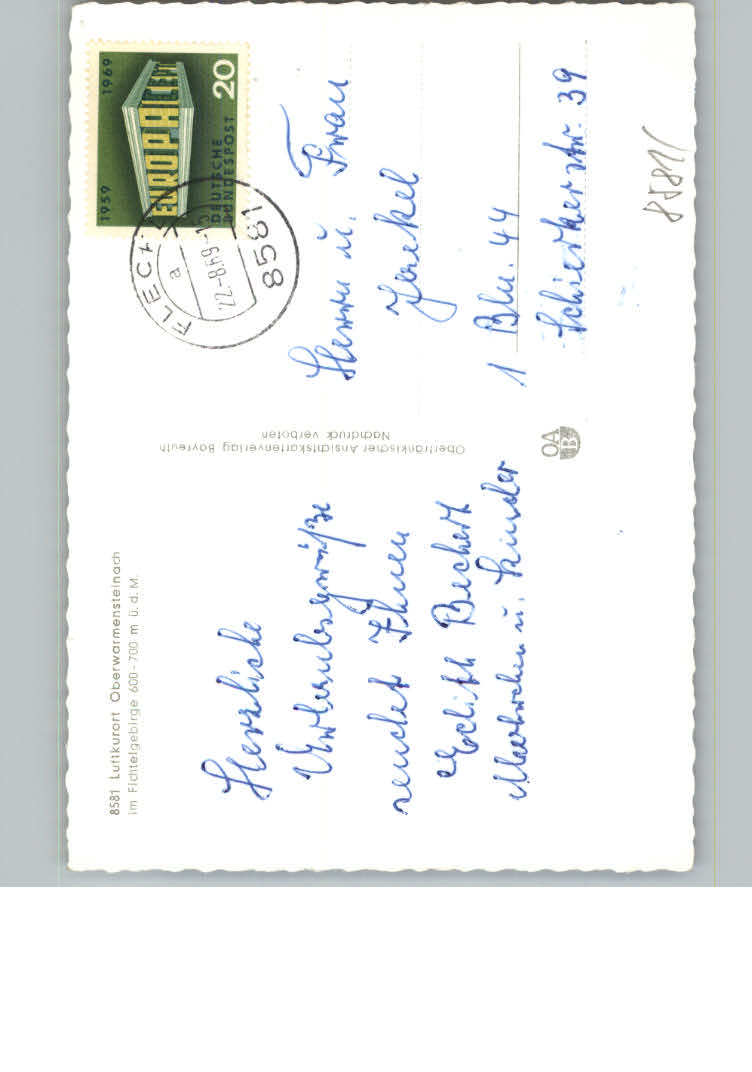 8581 Luftkurort Oberwarmensteinach
im Fichtelgebirge 600-700 m ü. d. M.
Herzliche
Urlaubsgrüße
sendet Ihnen
Edith Bechert
u. Kinder
Oberfränkischer Ansichtskartenverlag Bayreuth
Nachdruck verboten
OA
B
1959
1969
EUROPA CEPT
DEUTSCHE
BUNDESPOST
20
FLECK
a
22.-8.69-15
8581
Herrn u. Frau
Jaekel
1 Bln. 44
Schierkerstr. 39
8581/